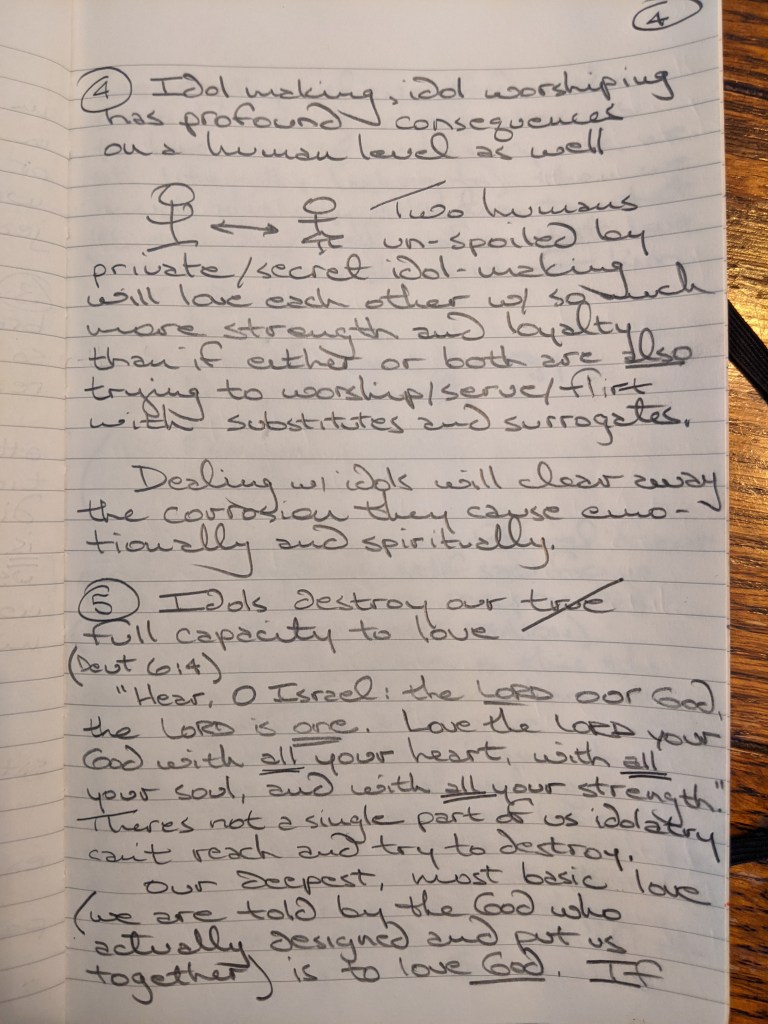 4
④ Idol making, idol worshiping
has profound consequences
on a human level as well
Two humans
un-spoiled by
private/secret idol-making
will love each other w/ so much
more strength and loyalty
than if either or both are also
trying to worship/serve/flirt
with substitutes and surrogates.
Dealing w/ idols will clear away
the corrosion they cause emo-
tionally and spiritually.
⑤ Idols destroy our true
full capacity to love
(Deut 6:4)
"Hear, O Israel: the LORD our God,
the LORD is one. Love the LORD your
God with all your heart, with all
your soul, and with all your strength."
Theres not a single part of us idolatry
can't reach and try to destroy.
Our deepest, most basic love
(we are told by the God who
actually designed and put us
together) is to love God. If